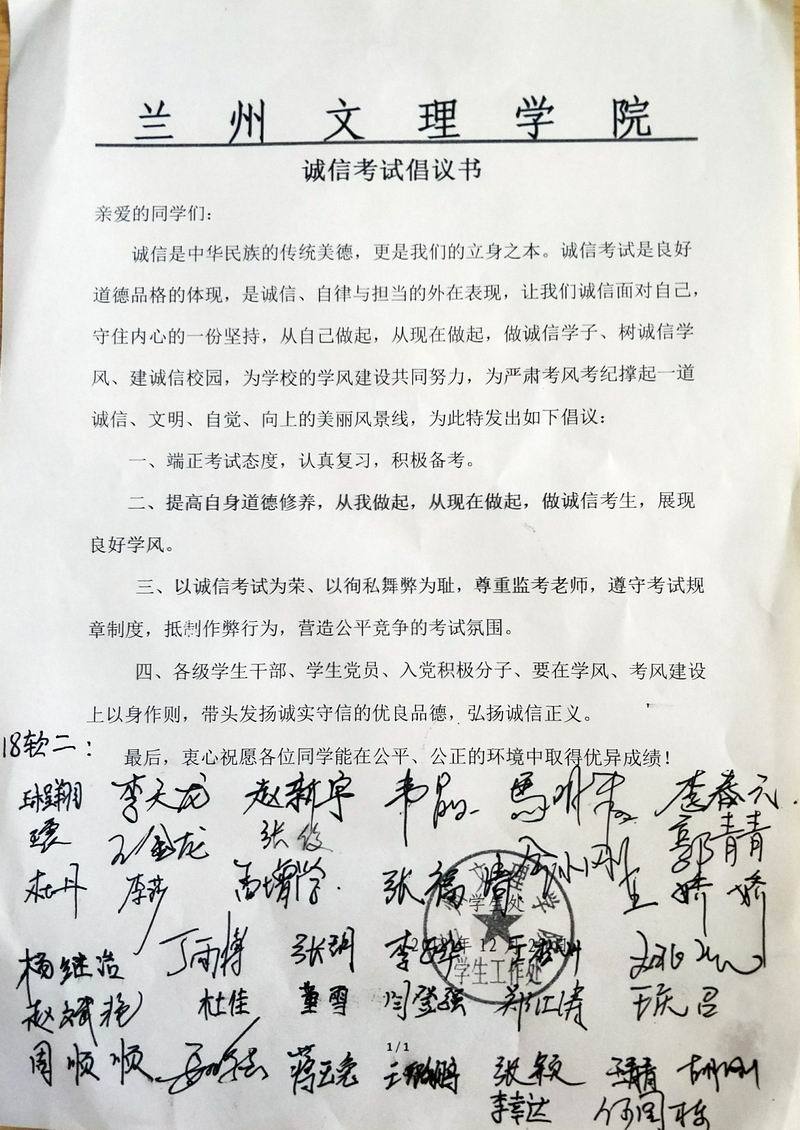 兰州文理学院
诚信考试倡议书
亲爱的同学们：
诚信是中华民族的传统美德，更是我们的立身之本。诚信考试是良好
道德品格的体现，是诚信、自律与担当的外在表现，让我们诚信面对自己，
守住内心的一份坚持，从自己做起，从现在做起，做诚信学子、树诚信学
风、建诚信校园，为学校的学风建设共同努力，为严肃考风考纪撑起一道
诚信、文明、自觉、向上的美丽风景线，为此特发出如下倡议：
一、端正考试态度，认真复习，积极备考。
二、提高自身道德修养，从我做起，从现在做起，做诚信考生，展现
良好学风。
三、以诚信考试为荣、以徇私舞弊为耻，尊重监考老师，遵守考试规
章制度，抵制作弊行为，营造公平竞争的考试氛围。
四、各级学生干部、学生党员、入党积极分子、要在学风、考风建设
上以身作则，带头发扬诚实守信的优良品德，弘扬诚信正义。
18软二：
最后，衷心祝愿各位同学能在公平、公正的环境中取得优异成绩！
李天龙 赵新宇 李春元
王金龙 张俊 郭青青
杜丹 李莎 张福 王娇娇
学生处
杨继治 丁雨博 张玥 年12月
学生工作处
赵斌艳 杜佳 董雪 闫登强 郑江涛 王庆吕
1/1
周顺顺 蒋玉兔 张颖 王靖 胡刚
李幸达 何国栋